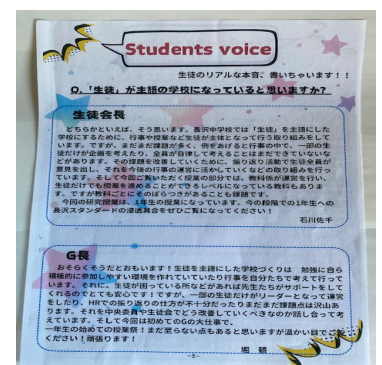 Students voice
生徒のリアルな本音、書いちゃいます！！
Q.「生徒」が主語の学校になっていると思いますか？
生徒会長
どちらかといえば、そう思います。長沢中学校では「生徒」を主語にした
学校にするために、行事や授業など生徒が主体となって行う取り組みをして
います。ですが、まだまだ課題が多く、例をあげると行事の中で、一部の生
徒だけが企画を考えたり、全員が自律して考えることはまだできていないな
どがあります。その課題を改善していくために、振り返り活動で生徒全員が
意見を出し、それを今後の行事の運営に活かしていくなどの取り組みを行っ
ています。そして今回ご覧いただく授業の部分では、教科係が運営を行い、
生徒だけでも授業を進めることができるレベルになっている教科もありま
す。ですが教科ごとにそのばらつきがあることも課題です。
今回の研究授業は、1年生の授業になっています。今の段階での1年生への
長沢スタンダードの浸透具合をぜひご覧になってください！
石川佐千
G長
おそらくそうだとおもいます！生徒を主語にした学校づくりは　勉強に自ら
積極的に参加しやすい環境を作れていていたり行事を自分たちで考えて行って
います。それに、生徒が困っている所などがあれば先生たちがサポートをして
くれるのでとても安心です！ですが、一部の生徒だけがリーダーとなって運営
をしたり、HRでの振り返りの仕方が不十分だったりまだまだ課題点は沢山あ
ります。それを中央委員や生徒会でどう改善していくべきなのか話し合って考
えています。そして今回は初めてのGの大仕事で、
一年生の始めての授業祭！まだ至らない点もあると思いますが温かい目でご
ください！頑張ります！
堀
-8-